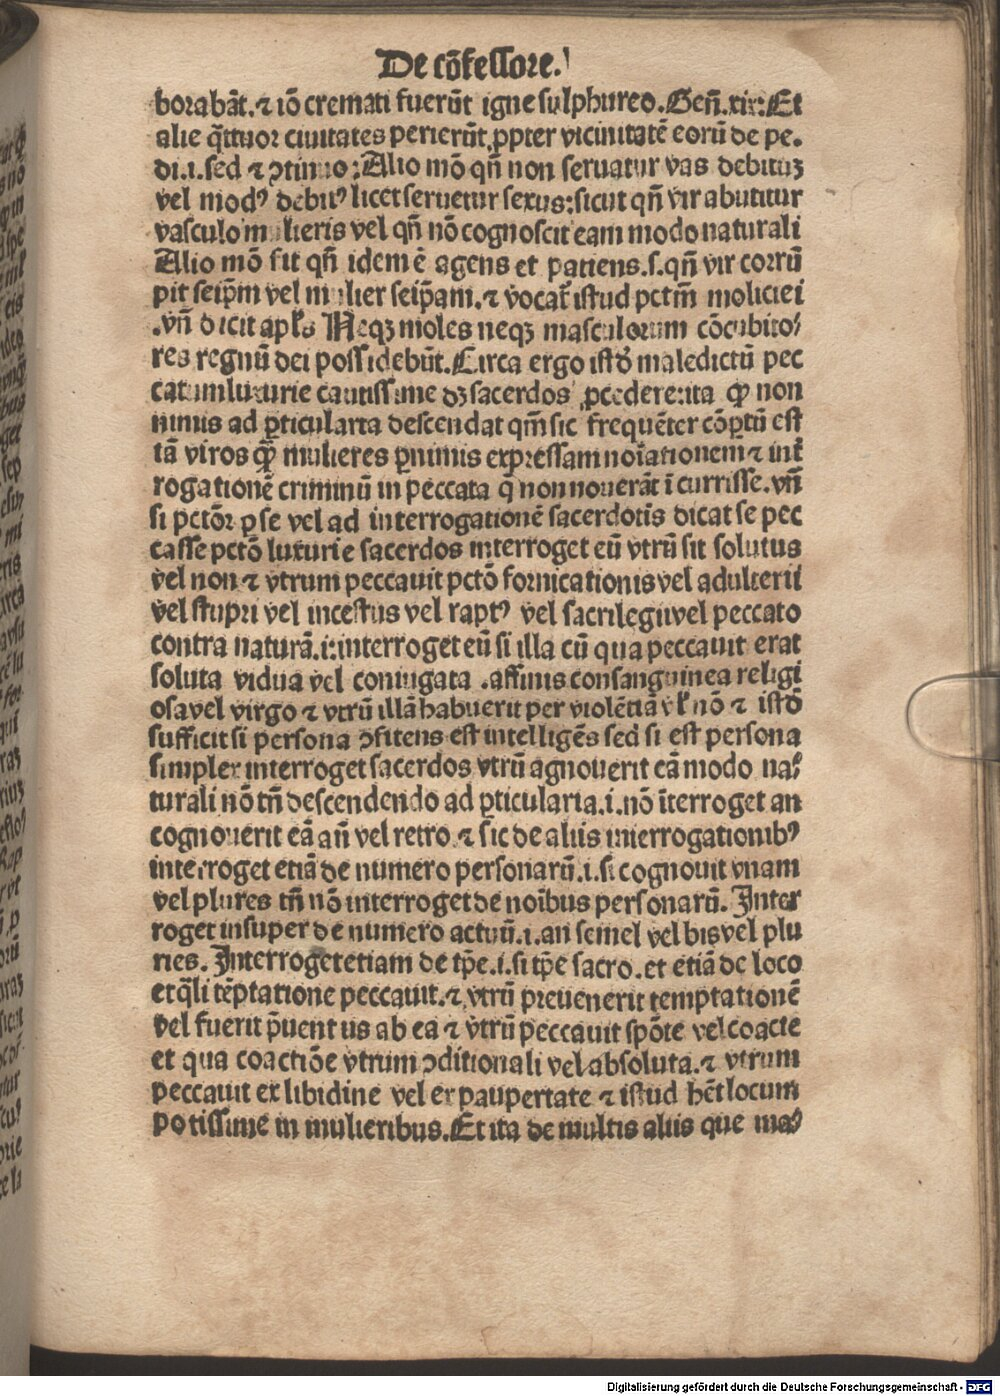 De cōfessore.
borabāt.⁊ iō cremati fuerūt igne sulphureo.Geñ.xix:Et
alie q̄ttuor ciuitates perierūt ꝓpter vicinitatē eorū de pe⸗
di.i.sed ⁊ ꝯtinuo:Alio mō qñ non seruatur vas debituꝫ
vel modꝰ debitꝰ licet seruetur sexus:sicut qñ vir abutitur
vasculo mulieris vel qñ nō cognoscit eam modo naturali
Alio mō fit qñ idem ē agens et patiens.s.qñ vir corrū
pit seip̄m vel mulier seip̄am.⁊ vocat̄ istud pctm̄ moliciei
.vñ dicit apl̄s Neqꝫ moles neqꝫ masculorum cōcubito⸗
res regnū dei possidebūt.Circa ergo istd̄ maledictū pec
catum luxurie cautissime dꝫ sacerdos ꝓcedere:ita ꝙ non
nimis ad ꝑticularia descendat qm̄ sic frequēter cōꝑtū est
tā viros q̄ꝫ mulieres ꝑ nimis expressam noīationem ⁊ int̄
rogationē criminū in peccata q̄ non nouerāt īcurrisse.vñ
si pctōr ꝑ se vel ad interrogationē sacerdotis dicat se pec
casse pctō luxurie sacerdos interroget eū vtrū sit solutus
vel non ⁊ vtrum peccauit pctō fornicationis vel adulterii
vel stupri vel incestus vel raptꝰ vel sacrilegii vel peccato
contra naturā.i:interroget eū si illa cū qua peccauit erat
soluta vidua vel coniugata .affinis consanguinea religi
osa vel virgo ⁊ vtrū illā habuerit per violētiā vl̄ nō ⁊ istd̄
sufficit si persona ꝯfitens est intelligēs sed si est persona
simplex interroget sacerdos vtrū agnouerit eā modo na⸗
turali nō tñ descendendo ad ꝑticularia.i.nō īterroget an
cognouerit eā añ vel retro ⁊ sic de aliis interrogationibꝰ
interroget etiā de numero personarū.i.si cognouit vnam
vel plures tñ nō interroget de noībus personarū. Inter
roget insuper de numero actuū.i.an semel vel bis vel plu
ries. Interroget etiam de tp̄e.i.si tp̄e sacro.et etiā de loco
et q̄li tēptatione peccauit.⁊ vtrū preuenerit temptationē
vel fuerit p̄uentus ab ea ⁊ vtrū peccauit spōte vel coacte
et qua coactiōe vtrum ꝯditionali vel absoluta.⁊ vtrum
peccauit ex libidine vel ex paupertate ⁊ istud hēt locum
potissime in mulieribus.Et ita de multis aliis que ma⸗
Digitalisierung gefördert durch die Deutsche Forschungsgemeinschaft - DFG